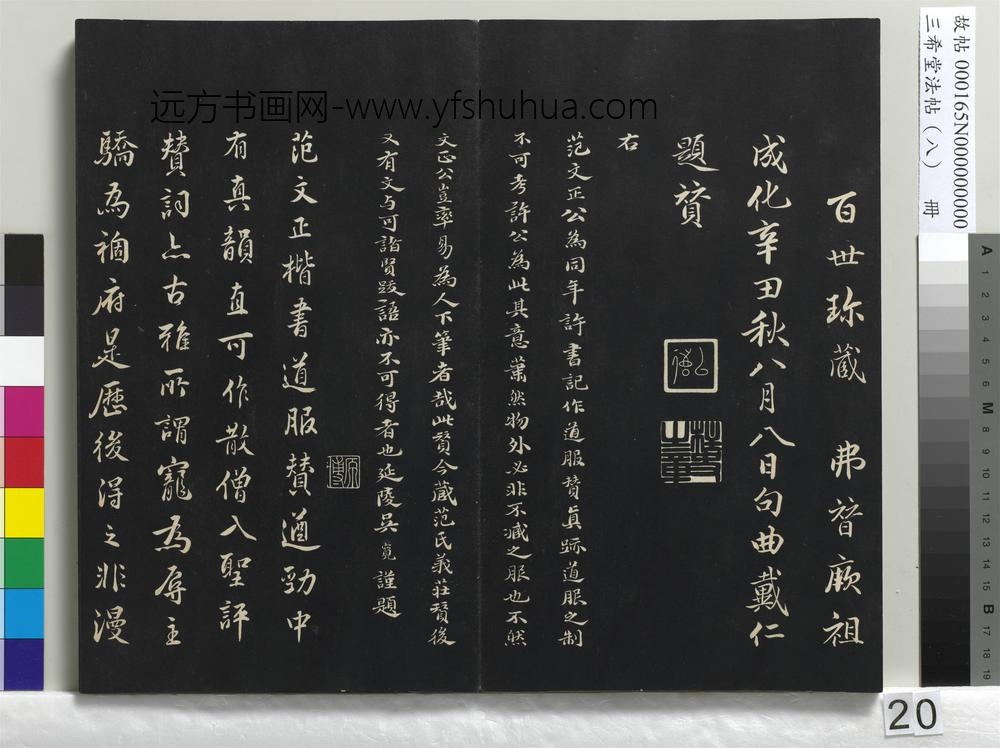 百世珎蔵 弗朁厥祖
成化辛丑秋八月八日句曲戴仁
題賛
右
范文正公為同年許書記作道服賛真跡道服之制
不可考許公為此其意蕭然物外必非不減之服也不然
文正公豈率易為人下筆者哉此賛今蔵范氏義莊賛後
又有文与可諸賢跋語亦不可得者也延陵吳寬謹題
范文正楷書道服賛遒勁中
有真韻直可作散僧入聖評
賛詞亦古雅所謂寵為辱主
驕為禍府是歷後得之非漫
远方书画网-www.yfshuhua.com
故帖000165N000000000
三希堂法帖(八) 冊
20
A 1 2 3 4 5 6 M 8 9 10 11 12 13 14 15 B 17 18 19